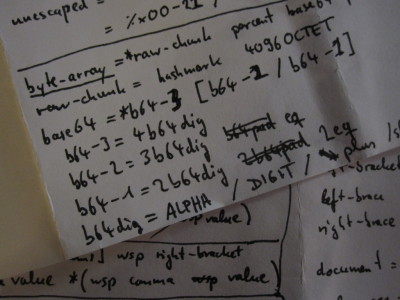 unescaped =
= %x00-21 /
byte-array = *raw-chunk percent base64
raw-chunk = hashmark 4096OCTET
base64 = *b64-3 [b64-2 / b64-1]
b64-3 = 4b64dig
b64-2 = 3b64dig eq
b64-1 = 2b64dig 2eq
b64dig = ALPHA / DIGIT / plus /
wsp value)
wsp right-bracket
value *(wsp comma wsp value)
left-brace
right-brace
document =